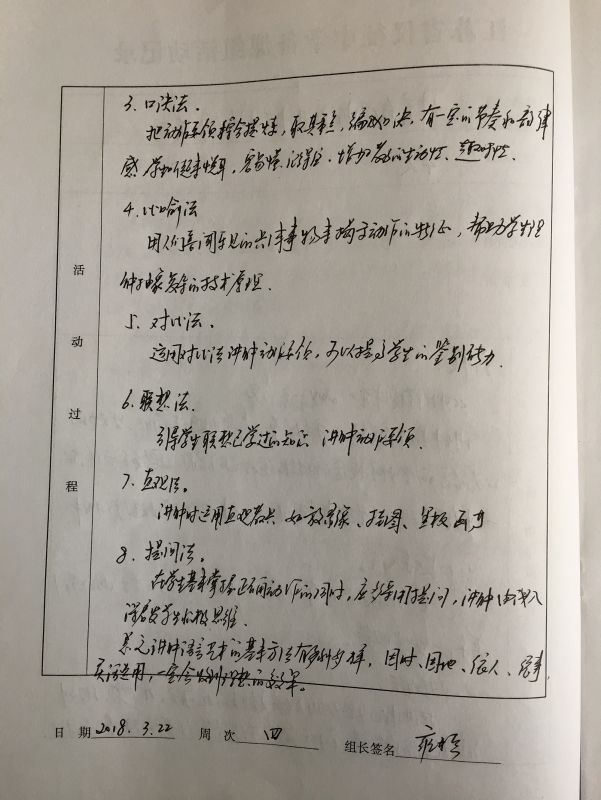 3. 口决法。
把动作要领精含提炼，取其重点，编成口决，有一定的节奏和韵律
感 学如倾来悦耳，容易懂、记得住，增加教的生动性、趣味性、
4. 比喻法
用人们喜闻乐见的具体事物来揭示动作的特征，帮助学生理
解抽象复杂的技术原理.
5. 对比法.
运用对比法讲解动作要领，可以提高学生的鉴别能力.
6. 联想法.
引导学生联想已学过的知识 讲解动作要领.
7. 直观法。
讲解时运用直观教具 如放录像、挂图、黑板画等
8. 提问法。
在学生基本掌握正确动作的同时，应多采用提问，讲解由浅入
深启发学生积极思维.
总之讲解语言艺术的基本方法有多种多样，因时、因地、依人、依事
灵活运用，一定会收到理想的效果.
活
动
过
程
日 期 2018.3.22 周 次 四 组长签名